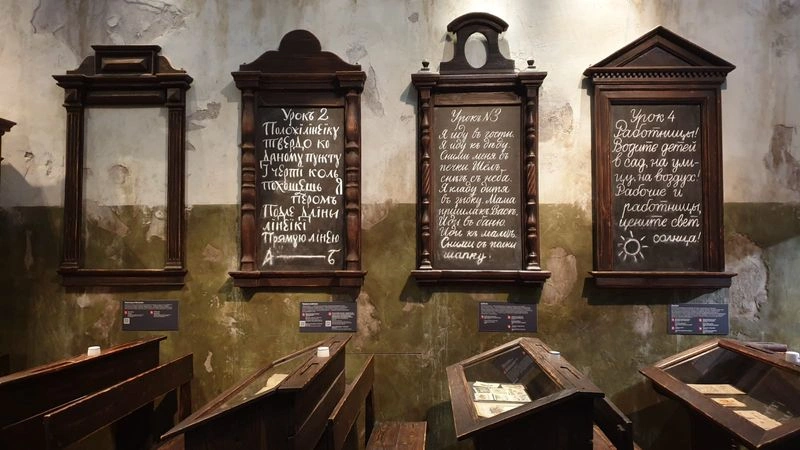 Урокъ 2
Положi лiнеiку
твердо ко
даному пункту
I чертi коль
похощешь Я
пером
Подле длiни
лiнеiкi
Прямую лiнею
А б
Урокъ №3
Я иду въ гости.
Я иду къ дѣду.
Сними меня съ
печки. Шелъ
снѣгъ съ неба.
Я кладу дитя
въ зыбку. Мама
пришла къ Васѣ.
Иди въ баню
Иди къ мамѣ.
Сними съ палки
шапку.
Урок 4
Работницы!
Водите детей
в сад, на ули-
цу, на воздух!
Рабочие и
работницы,
цените свет
солнца!